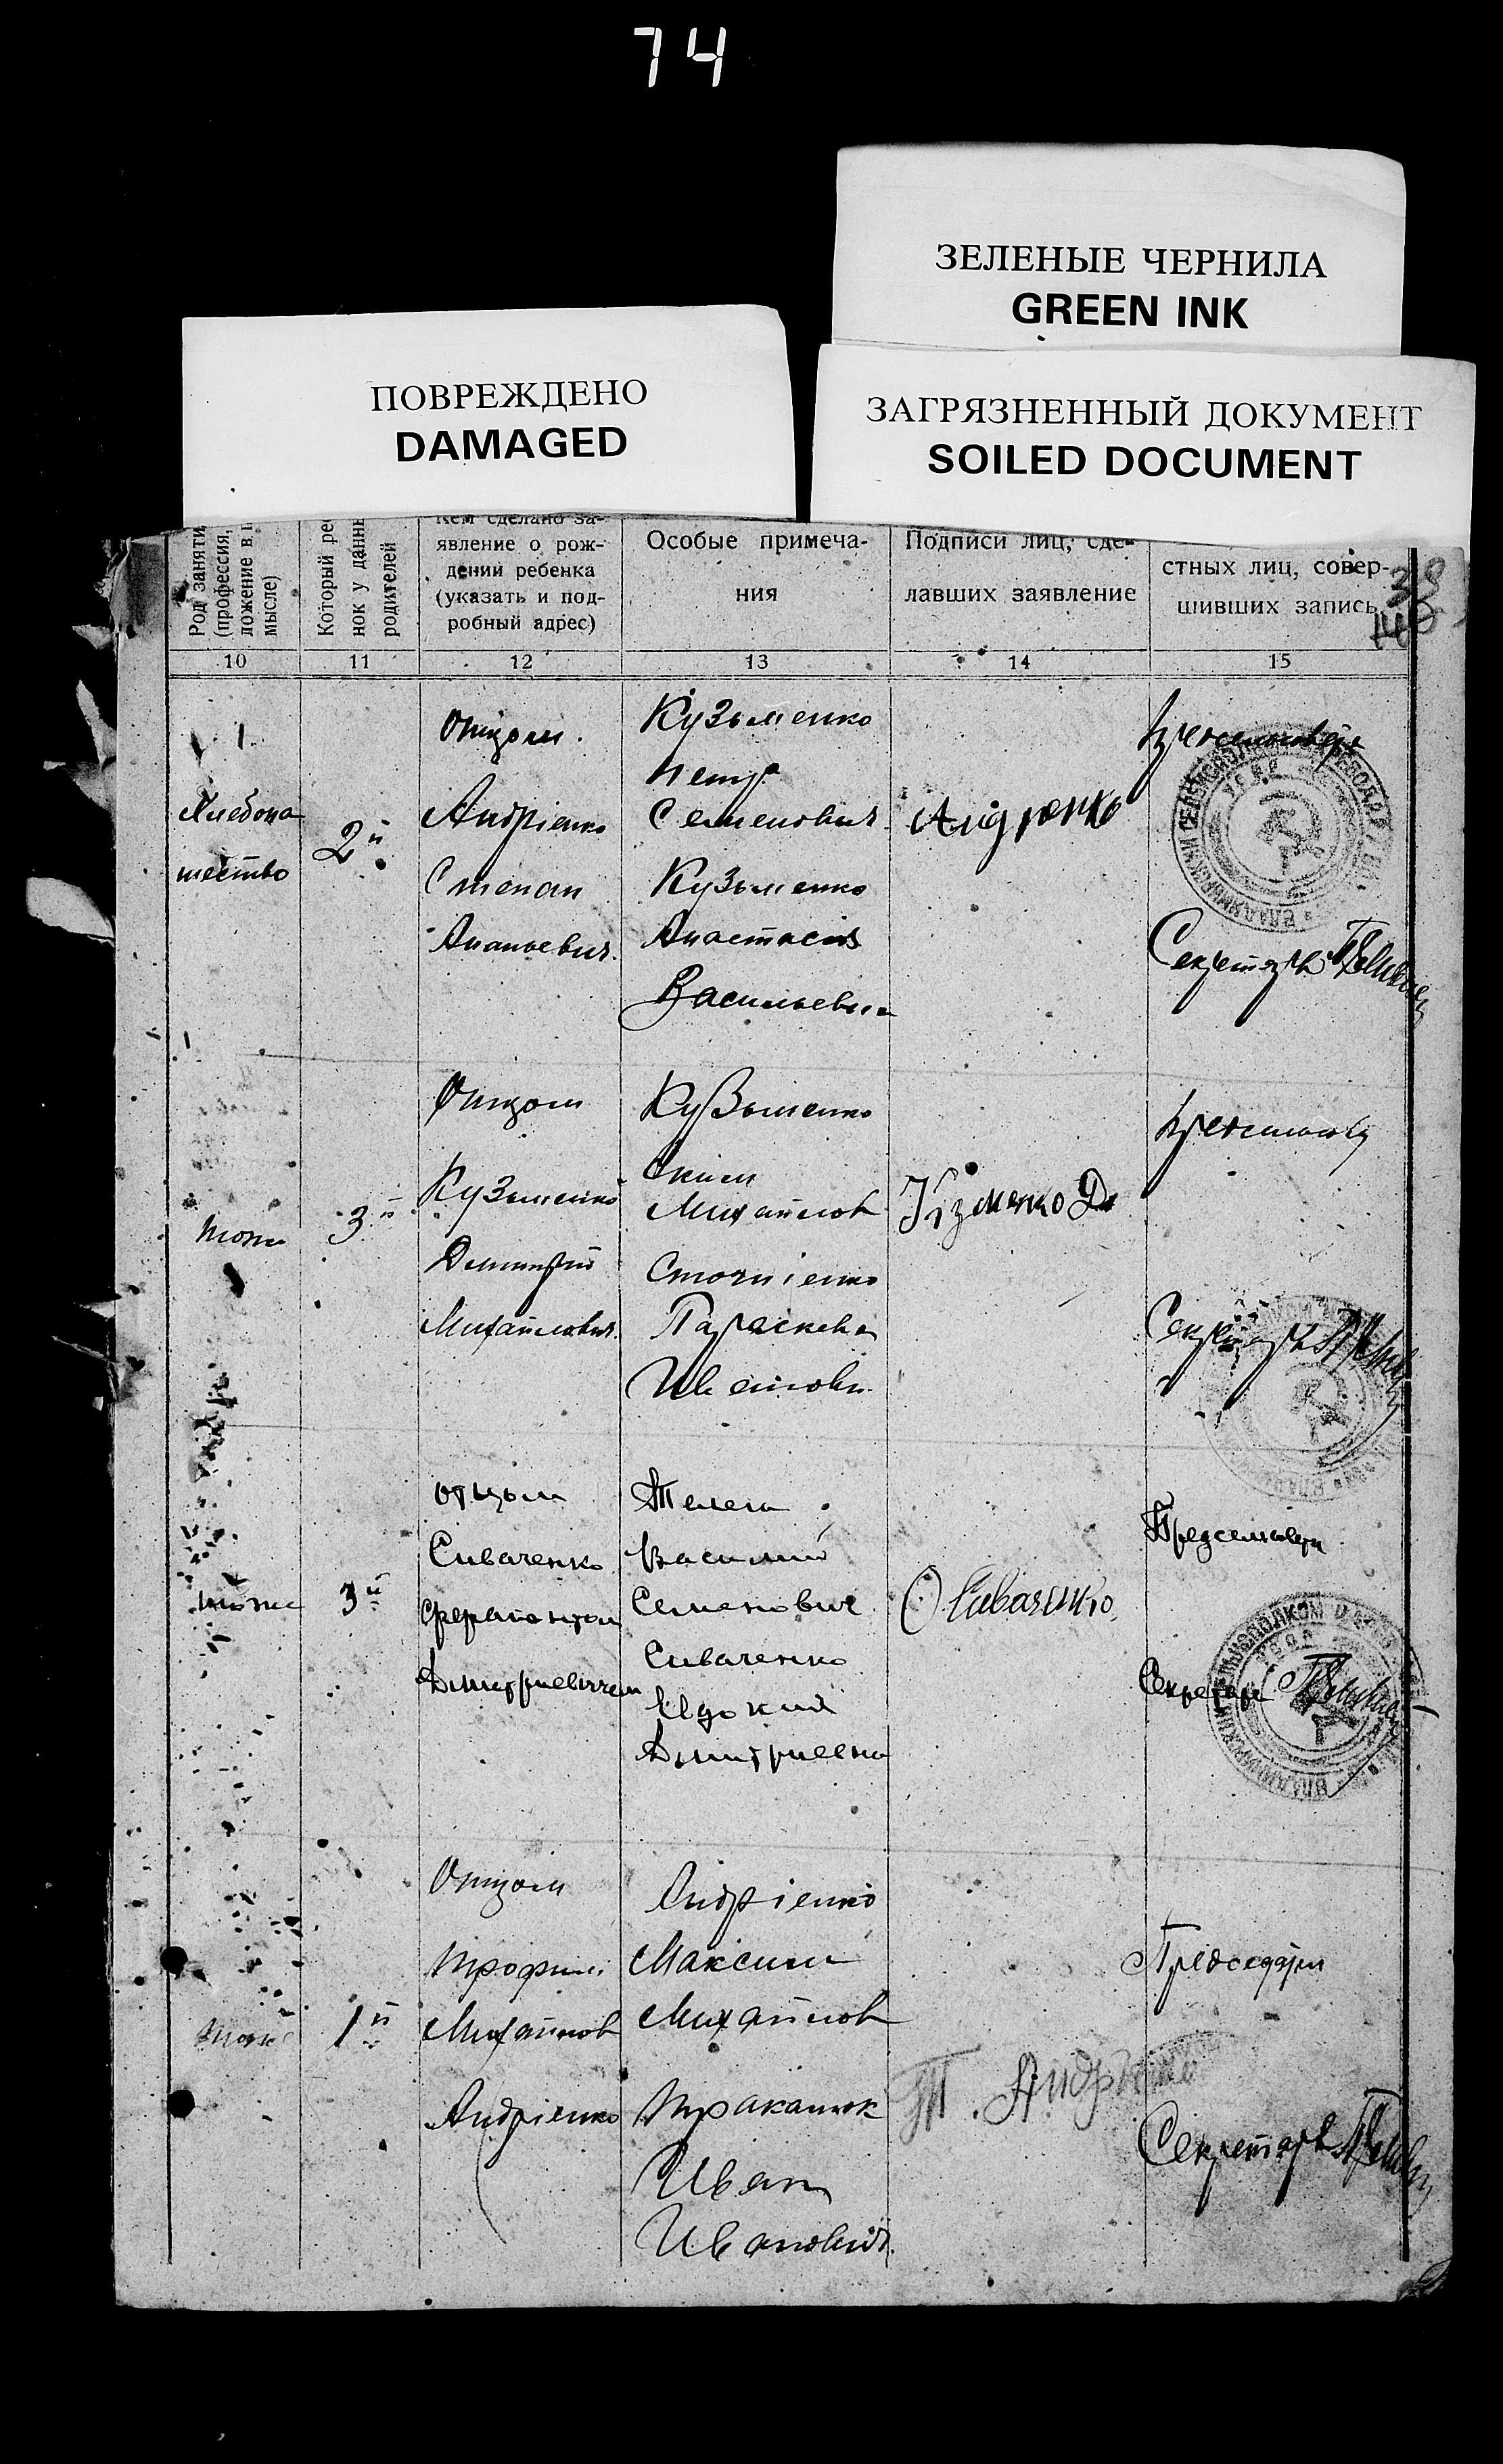 74
ЗЕЛЕНЫЕ ЧЕРНИЛА
GREEN INK
ПОВРЕЖДЕНО
DAMAGED
ЗАГРЯЗНЕННЫЙ ДОКУМЕНТ
SOILED DOCUMENT
Род заняти
(профессия,
ложение в п
мысле)
Который реб
нок у данны
родителей
Кем сделано за-
явление о рож-
дении ребенка
(указать и под-
робный адрес)
Особые примеча-
ния
Подписи лиц, сде-
лавших заявление
стных лиц, совер-
шивших запись
10 11 12 13 14 15
Хлебопа
шество
2й
Отцом.
Андріенко
Степан
Ананьевич.
Кузьменко
Петр
Семенович.
Кузьменко
Анастасия
Васильевна
Андренко
Секретарь
тоже
3й
Отцом
Кузьменко
Димитрий
Михайлович.
Кузьменко
Аким
Михайлов
Параскева
Ивановн.
Кузменко Д
Секретарь
тоже
3й
отцом
Сиваченко
Ферапонтом
Димитриевичем
Телега
Василий
Семенович
Сиваченко
Евдокия
Димитриевна
Сиваченко
Секретарь
тоже
1й
Отцом
Трофим
Михайлов
Андріенко
Андріенко
Максим
Михайлов
Иван
Иванович.
Т. Андріенко
Секретарь